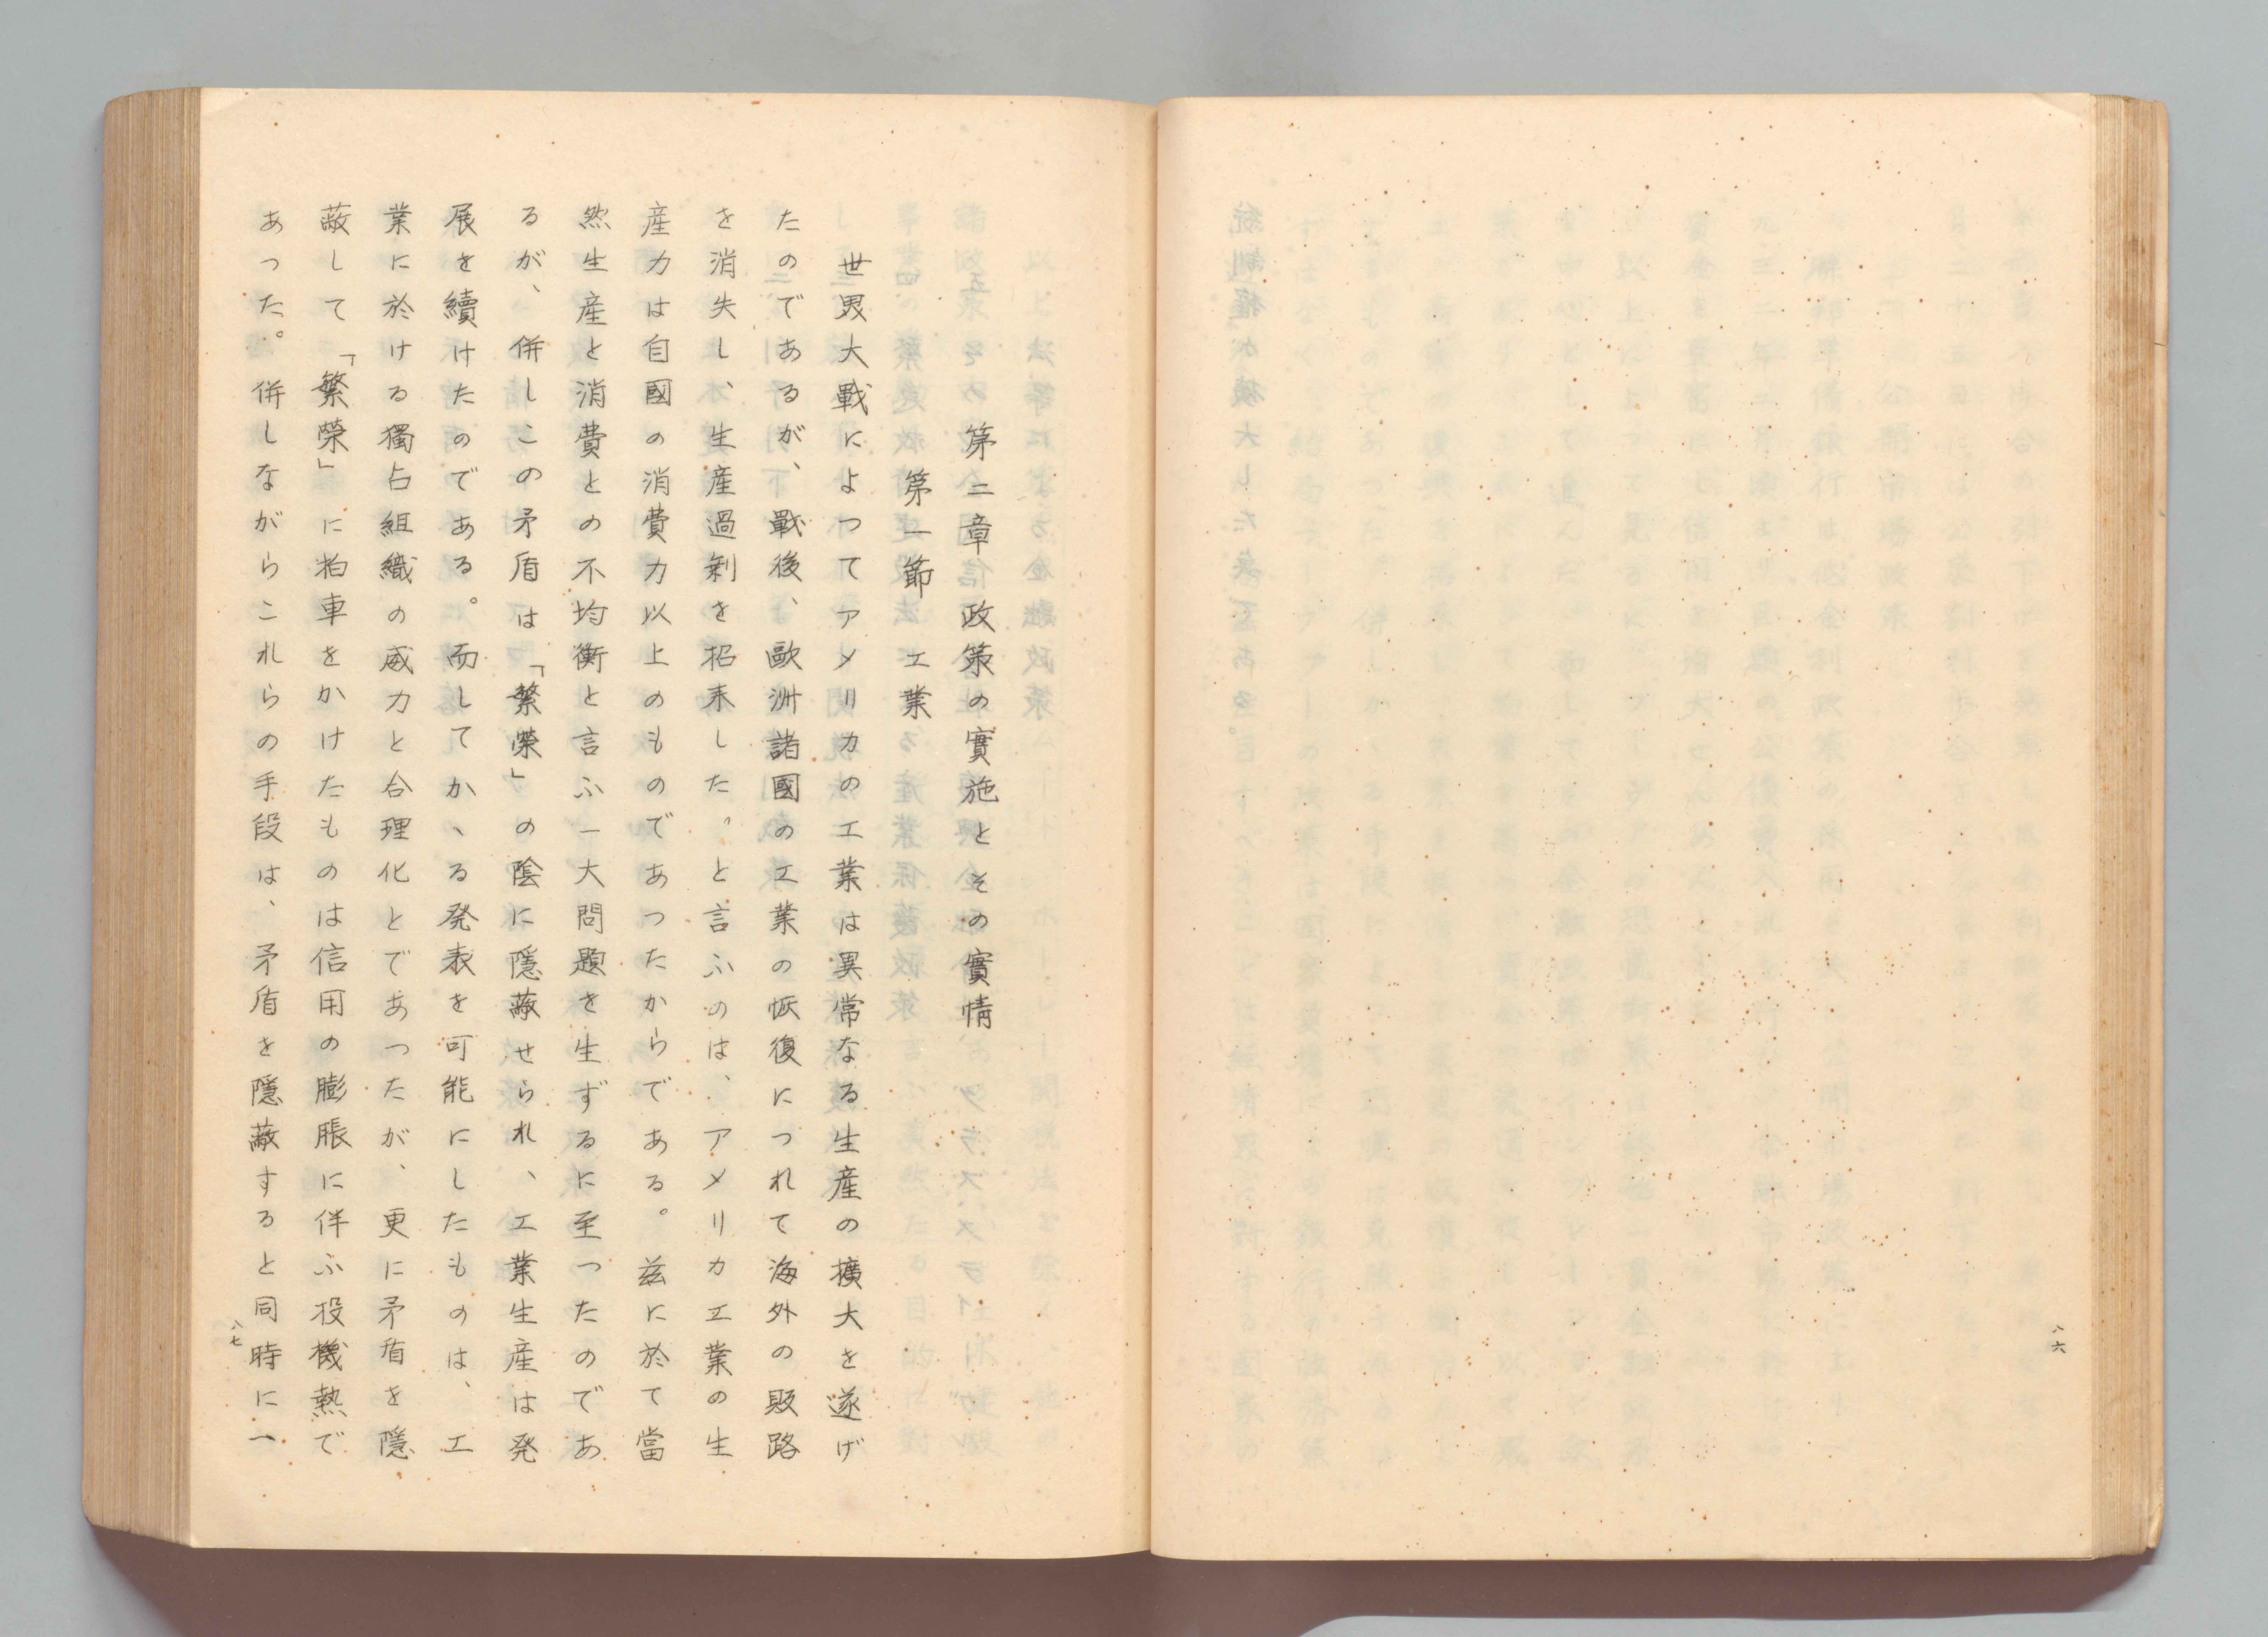 八六
第二章　政策の實施とその實情
第一節　工業
世界大戰によつてアメリカの工業は異常なる生産の擴大を遂げ
たのであるが、戰後、歐洲諸國の工業の恢復につれて海外の販路
を消失し、生産過剰を招来した。と言ふのは、アメリカ工業の生
産力は自國の消費力以上のものであつたからである。茲に於て當
然生産と消費との不均衡と言ふ一大問題を生ずるに至つたのであ
るが、併しこの矛盾は「繁榮」の陰に隱蔽せられ、工業生産は発
展を續けたのである。而してかゝる発表を可能にしたものは、工
業に於ける獨占組織の威力と合理化とであつたが、更に矛盾を隱
蔽して「繁榮」に拍車をかけたものは信用の膨脹に伴ふ投機熱で
あつた。併しながらこれらの手段は、矛盾を隱蔽すると同時に一
八七